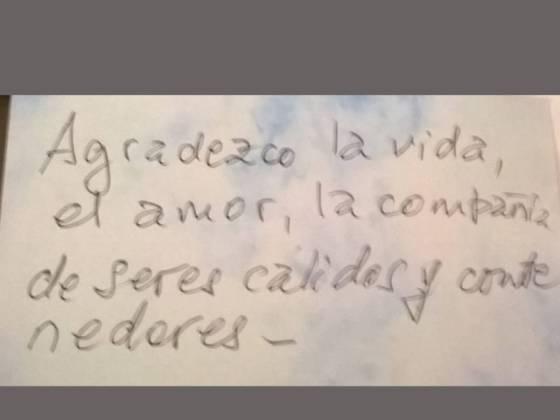 Agradezco la vida,
el amor, la compañia
de seres calidos y conte
nedores -